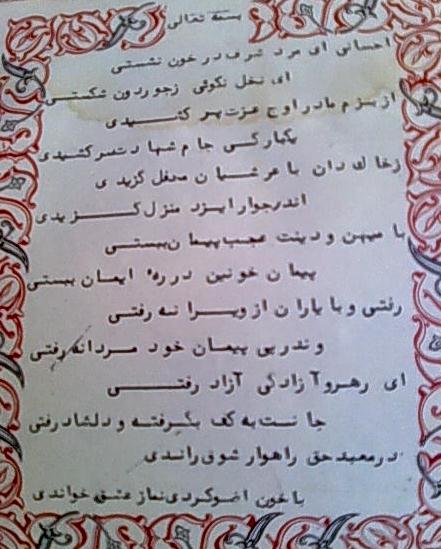 بسمه تعالی
احسانی ای مرد شرف در خون نشستی
ای نخل نکوئی زجور دون شکستی
از بزم ما در اوج عزت پر کشیدی
یکبارگی جام شهادت سر کشیدی
زخاکدان با عرشیان محفل گزیدی
اندر جوار ایزد منزل گزیدی
با میهن و دینت عجب پیمان ببستی
پیمان خونین در ره ایمان ببستی
رفتی و با یاران از ویرانه رفتی
وندر پی پیمان خود مردانه رفتی
ای رهرو آزادگی آزاد رفتی
جانت به کف بگرفته و دلشاد رفتی
در معبد حق راهوار شوق راندی
با خون وضو کردی نماز عشق خواندی